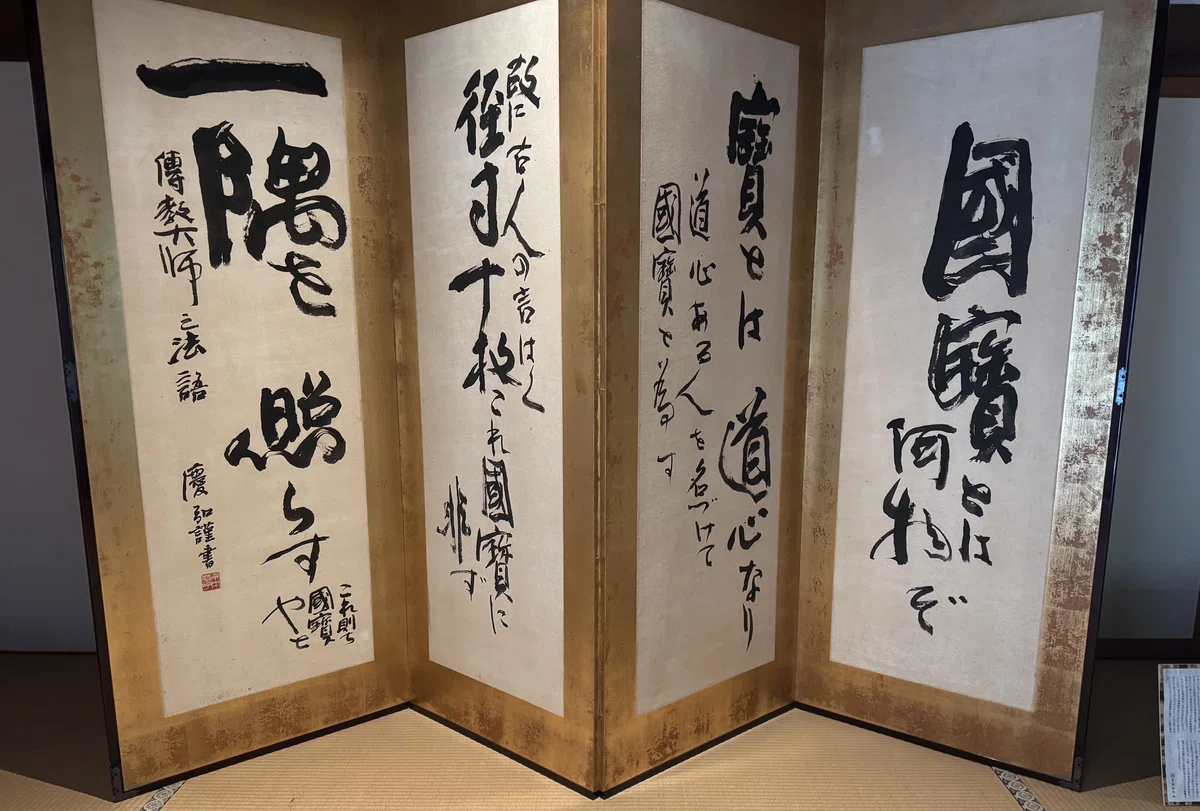 國寳とは
何物ぞ
寳とは道心なり
道心ある人を名づけて
國寳と為す
故に古人の言はく
徑寸十枚これ國寳に
非ず
一隅を照らす
これ則ち
國寳やと
傳教大師之法語
慶弘謹書